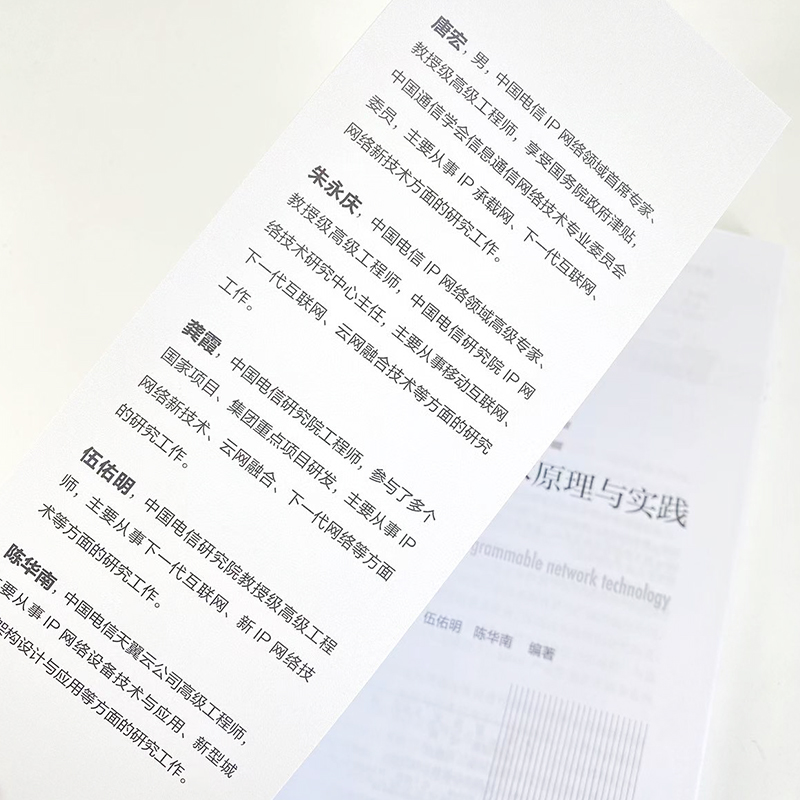 唐宏，男，中国电信 IP 网络领域首席专家、
教授级高级工程师，享受国务院政府津贴，
中国通信学会信息通信网络技术专业委员会
委员，主要从事 IP 承载网、下一代互联网、
网络新技术方面的研究工作。
朱永庆，中国电信 IP 网络领域高级专家、
教授级高级工程师，中国电信研究院 IP 网
络技术研究中心主任，主要从事移动互联网、
下一代互联网、云网融合技术等方面的研究
工作。
龚霞，中国电信研究院工程师，参与了多个
国家项目、集团重点项目研发，主要从事 IP
网络新技术、云网融合、下一代网络等方面
的研究工作。
伍佑明，中国电信研究院教授级高级工程
师，主要从事下一代互联网、新 IP 网络技
术等方面的研究工作。
陈华南，中国电信天翼云公司高级工程师，
主要从事 IP 网络设备技术与应用、新型城
架构设计与应用等方面的研究工作。
原理与实践
grammable network technology
伍佑明 陈华南 编著